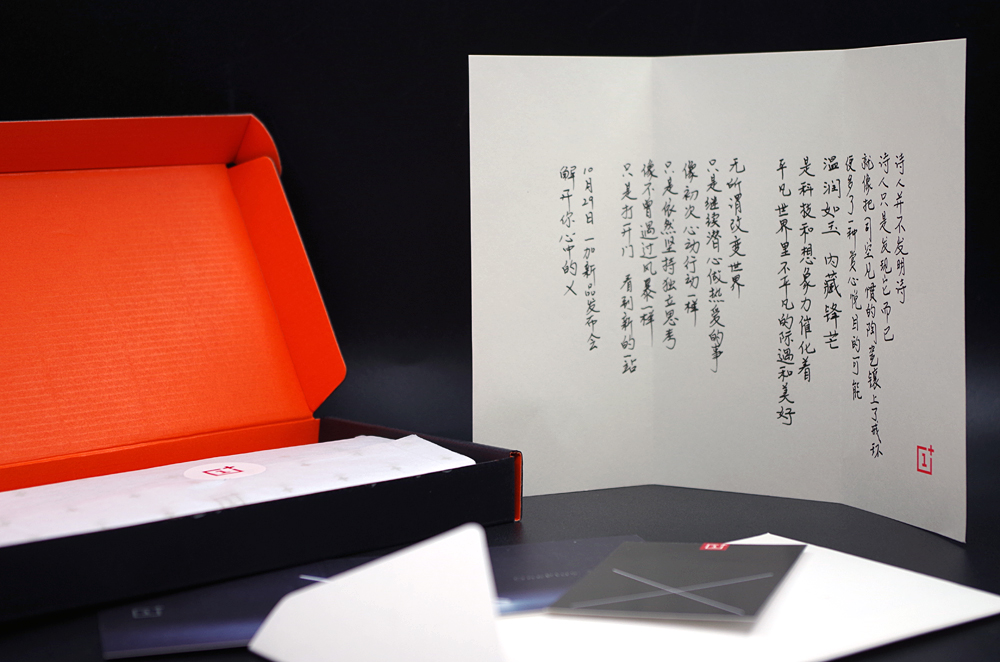 诗人并不发明诗
诗人只是发现它而已
就像把司空见惯的陶瓷镶上了我环
便多了一种赏心悦目的可能
温润如玉 内藏锋芒
是科技和想象力催化着
平凡世界里不平凡的际遇和美好
无所谓改变世界
只是继续潜心做热爱的事
像初次心动行动一样
只是依然坚持独立思考
像不曾遇过风暴一样
只是打开门 看到新的一站
10月29日 一加新品发布会
解开你心中的 X
1+
1+
1+
1+